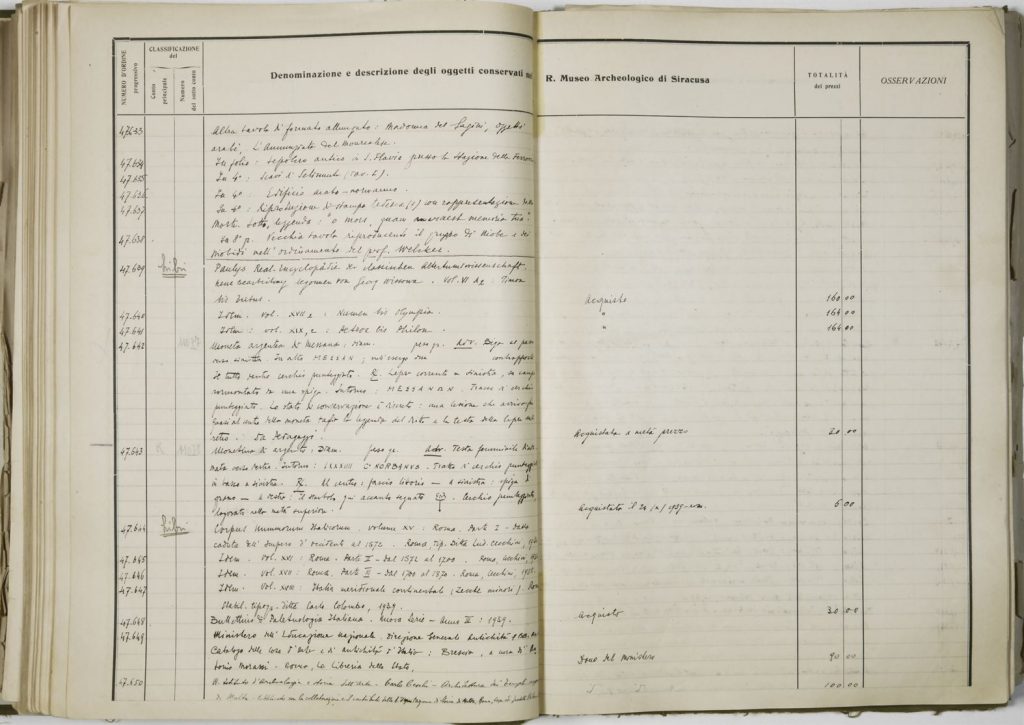 NUMERO D'ORDINE progressivo
CLASSIFICAZIONE del
Conto principale
Numero del sotto conto
Denominazione e descrizione degli oggetti conservati nel R. Museo Archeologico di Siracusa
TOTALITÀ dei prezzi
OSSERVAZIONI
47.633 Altra tavola di formato allungato: Madonna del oggetti
arabi, L'Annunziata del Monrealese.
47.634 In folio: Sepolcro antico a S. Flavia presso la Stazione della
47.635 In 4°: Scavi di Selinunte (tav. 2).
47.636 In 4°: Edificio arabo-normanno.
47.637 In 4°: Riproduzione di stampa tedesca (?) con rappresentazione della
Morte. Sotto, leggenda: "o mors, quam amara est memoria tua".
47.638 In 8° p. Vecchia tavola riproducente il gruppo di Niobe e dei
Niobidi nell'ordinamento del prof. Welcker.
47.639 Libri Paulys Real-Encyclopädie der classischen Altertumswissenschaft.
neue Bearbeitung begonnen von Georg Wissowa. Vol. VI A2: Timon
bis Acquisto 160 00
47.640 Idem. vol. XVII 2: Numen bis Olympia. " 164 00
47.641 Idem: vol. XIX, 2: bis Philon. " 164 00
47.642 Moneta argentea di Messana; diam. peso gr. Adv. Biga al passo
verso sinistra. In alto MESSAN; nell'esergo due contrapposti
il tutto dentro cerchio punteggiato. R. Lepre corrente a sinistra, in campo
sormontata da una spiga. Intorno: MESSANON. Tracce di cerchio
punteggiato. Lo stato di conservazione è discreto: una lesione che arriva fin
quasi al centro della moneta taglia la leggenda del dritto e la testa della lepre nel
retro. Da Acquistata a metà prezzo 20 00
47.643 Monetina di argento; Diam. peso gr. Adv. Testa femminile
verso destra. Intorno: LXXXVIII C NORBANVS. Tratto di cerchio punteggiato
in basso a sinistra. R. Al centro: fascio littorio — a sinistra: spiga di
grano — a destra: il simbolo qui accanto segnato. Cerchio punteggiato,
lavorato nella metà superiore. Acquistato il 24 1939-XVII. 6 00
47.644 Libri Corpus Nummorum Italicorum. volume XV: Roma. Parte I - dalla
caduta dell'Impero d'occidente al 1572. Roma, Tip. Ditta Lud. Cecchini,
47.645 Idem. Vol. XVI: Roma. Parte II - dal 1572 al 1700. Roma, Cecchini,
47.646 Idem. vol. XVII: Roma. Parte III - dal 1700 al 1870. Roma, Cecchini,
47.647 Idem. Vol. XVIII: Italia meridionale continentale (Zecche minori).
Stabil. tipogr. ditta Carlo Colombo, 1939. Acquisto 30 00
47.648 Bullettino di Paletnologia Italiana. Nuova Serie - Anno III: 1939.
47.649 Ministero dell'Educazione Nazionale. Direzione Generale Antichità e Belle
Catalogo delle cose d'Arte e di antichità d'Italia: Brescia, a cura di
tonio Morassi. Roma, La Libreria dello Stato, Dono del Ministero 90 00
47.650 R. Istituto d'Archeologia e Storia dell'arte. Carlo Ceschi - Architettura dei Templi
di Malta 100 00